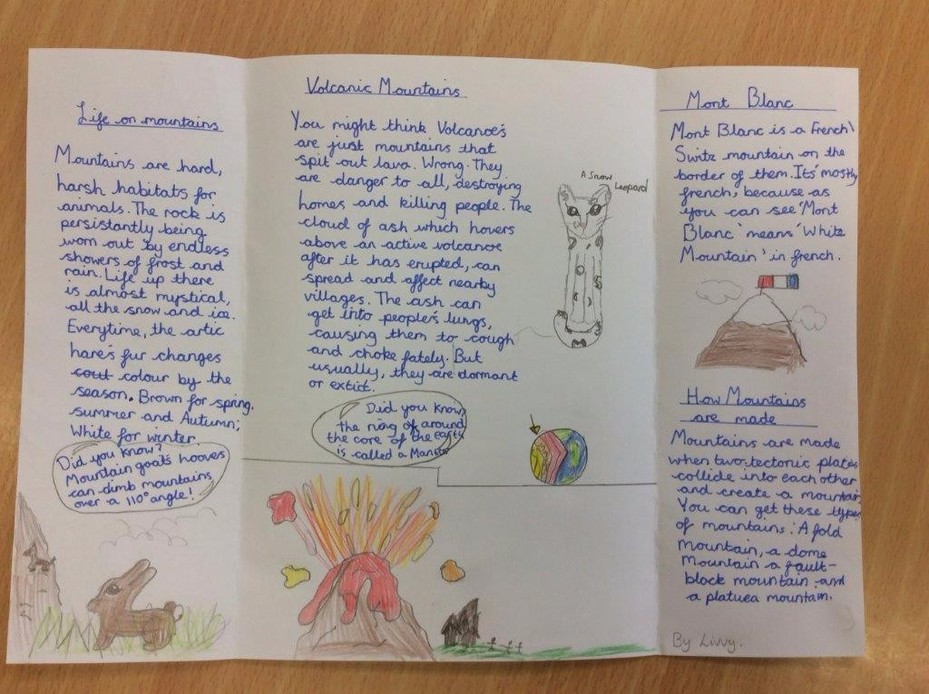 Life on mountains
Mountains are hard,
harsh habitats for
animals. The rock is
persistantly being
worn out by endless
showers of frost and
rain. Life up there
is almost mystical,
all the snow and ice.
Everytime, the artic
hare's fur changes
colour by the
season. Brown for spring,
summer and Autumn;
White for winter.
Did you know?
Mountain goats hooves
can climb mountains
over a 110° angle!
Volcanic Mountains
You might think Volcanoe's
are just mountains that
spit out lava. Wrong. They
are danger to all, destroying
homes and killing people. The
cloud of ash which hovers
above an active volcanoe
after it has erupted, can
spread and affect nearby
villages. The ash can
get into people's lungs,
causing them to cough
and choke fately. But
usually, they are dormant
or extict.
A Snow
Leopard
Did you know,
the ring of around
the core of the Earth
is called a
Mont Blanc
Mont Blanc is a French\
Switz mountain on the
border of them. Its' mostly
french, because as
you can see 'Mont
Blanc' means 'White
Mountain' in french.
How Mountains
are made
Mountains are made
when two tectonic plates
collide into each other
and create a mountain
You can get these types
of mountains: A fold
mountain, a dome
Mountain a fault-
block mountain and
a platuea mountain.
By Livvy.